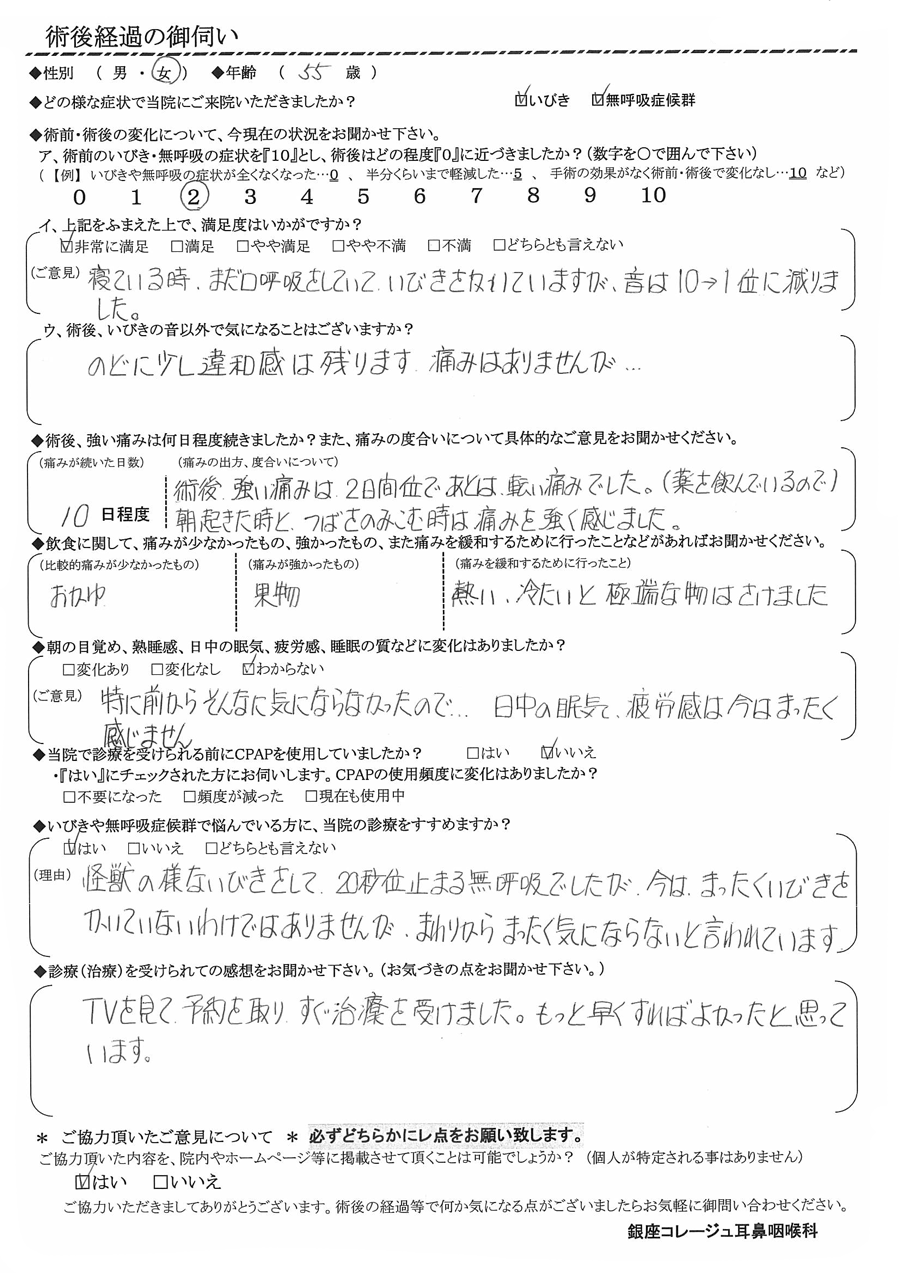 術後経過の御伺い
◆性別 （ 男 ・ 女 ） ◆年齢 （ 55 歳 ）
◆どの様な症状で当院にご来院いただきましたか？ ☑いびき ☑無呼吸症候群
◆術前・術後の変化について、今現在の状況をお聞かせ下さい。
ア、術前のいびき・無呼吸の症状を『10』とし、術後はどの程度『0』に近づきましたか？（数字を〇で囲んで下さい）
（【例】 いびきや無呼吸の症状が全くなくなった…0 、 半分くらいまで軽減した…5 、 手術の効果がなく術前・術後で変化なし…10 など）
0 1 2 3 4 5 6 7 8 9 10
イ、上記をふまえた上で、満足度はいかがですか？
☑非常に満足 □満足 □やや満足 □やや不満 □不満 □どちらとも言えない
（ご意見） 寝ている時、まだ口呼吸をしていて、いびきをかいていますが、音は10→1位に減りま
した。
ウ、術後、いびきの音以外で気になることはございますか？
のどに少し違和感は残ります。痛みはありませんが…
◆術後、強い痛みは何日程度続きましたか？また、痛みの度合いについて具体的なご意見をお聞かせください。
（痛みが続いた日数） （痛みの出方、度合いについて）
術後、強い痛みは、2日間位であとは、軽い痛みでした。（薬を飲んでいるので）
10 日程度 朝起きた時と、つばさのみこむ時は痛みを強く感じました。
◆飲食に関して、痛みが少なかったもの、強かったもの、また痛みを緩和するために行ったことなどがあればお聞かせください。
（比較的痛みが少なかったもの） （痛みが強かったもの） （痛みを緩和するために行ったこと）
おかゆ 果物 熱い、冷たいと極端な物はさけました
◆朝の目覚め、熟睡感、日中の眠気、疲労感、睡眠の質などに変化はありましたか？
□変化あり □変化なし ☑わからない
（ご意見） 特に前からそんなに気にならなかったので… 日中の眠気、疲労感は今はまったく
感じません
◆当院で診療を受けられる前にCPAPを使用していましたか？ □はい ☑いいえ
・『はい』にチェックされた方にお伺いします。CPAPの使用頻度に変化はありましたか？
□不要になった □頻度が減った □現在も使用中
◆いびきや無呼吸症候群で悩んでいる方に、当院の診療をすすめますか？
☑はい □いいえ □どちらとも言えない
（理由） 怪獣の様ないびきをして、20秒位止まる無呼吸でしたが、今は、まったくいびきを
かいていないわけではありませんが、まわりからまったく気にならないと言われています
◆診療（治療）を受けられての感想をお聞かせ下さい。（お気づきの点をお聞かせ下さい。）
TVを見て、予約を取り、すぐ治療を受けました。もっと早くすればよかったと思って
います。
＊ ご協力頂いたご意見について ＊ 必ずどちらかにレ点をお願い致します。
ご協力頂いた内容を、院内やホームページ等に掲載させて頂くことは可能でしょうか？ （個人が特定される事はありません）
☑はい □いいえ
ご協力いただきましてありがとうございます。術後の経過等で何か気になる点がございましたらお気軽に御問い合わせください。
銀座コレージュ耳鼻咽喉科